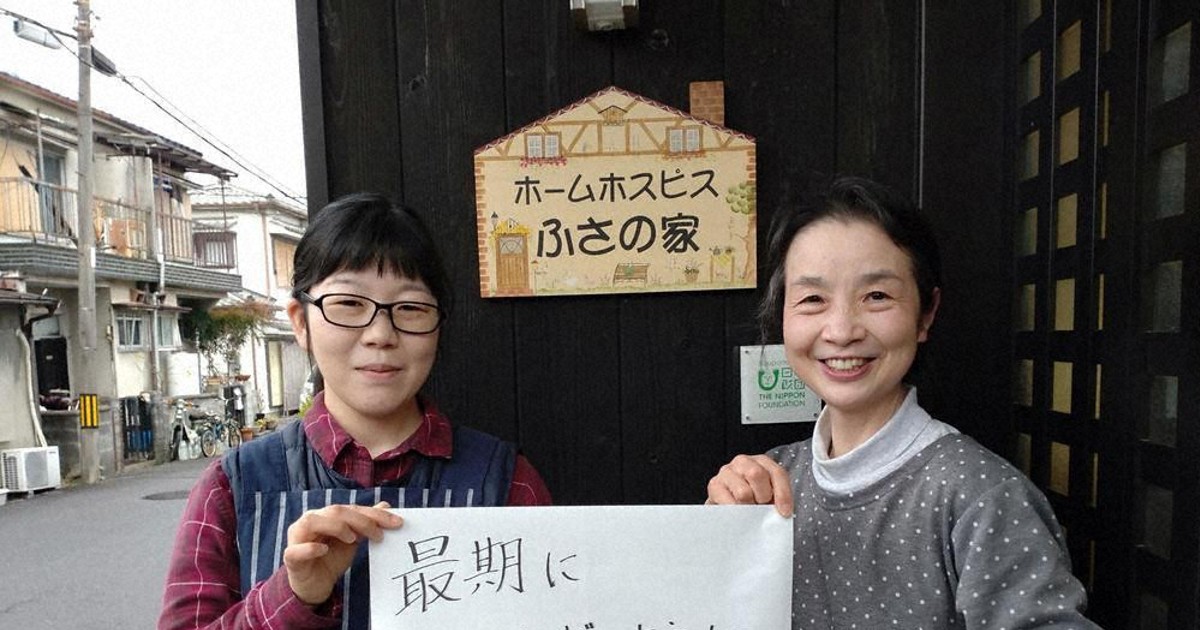 ホームホスピス
ふさの家
THE NIPPON
FOUNDATION
最期に